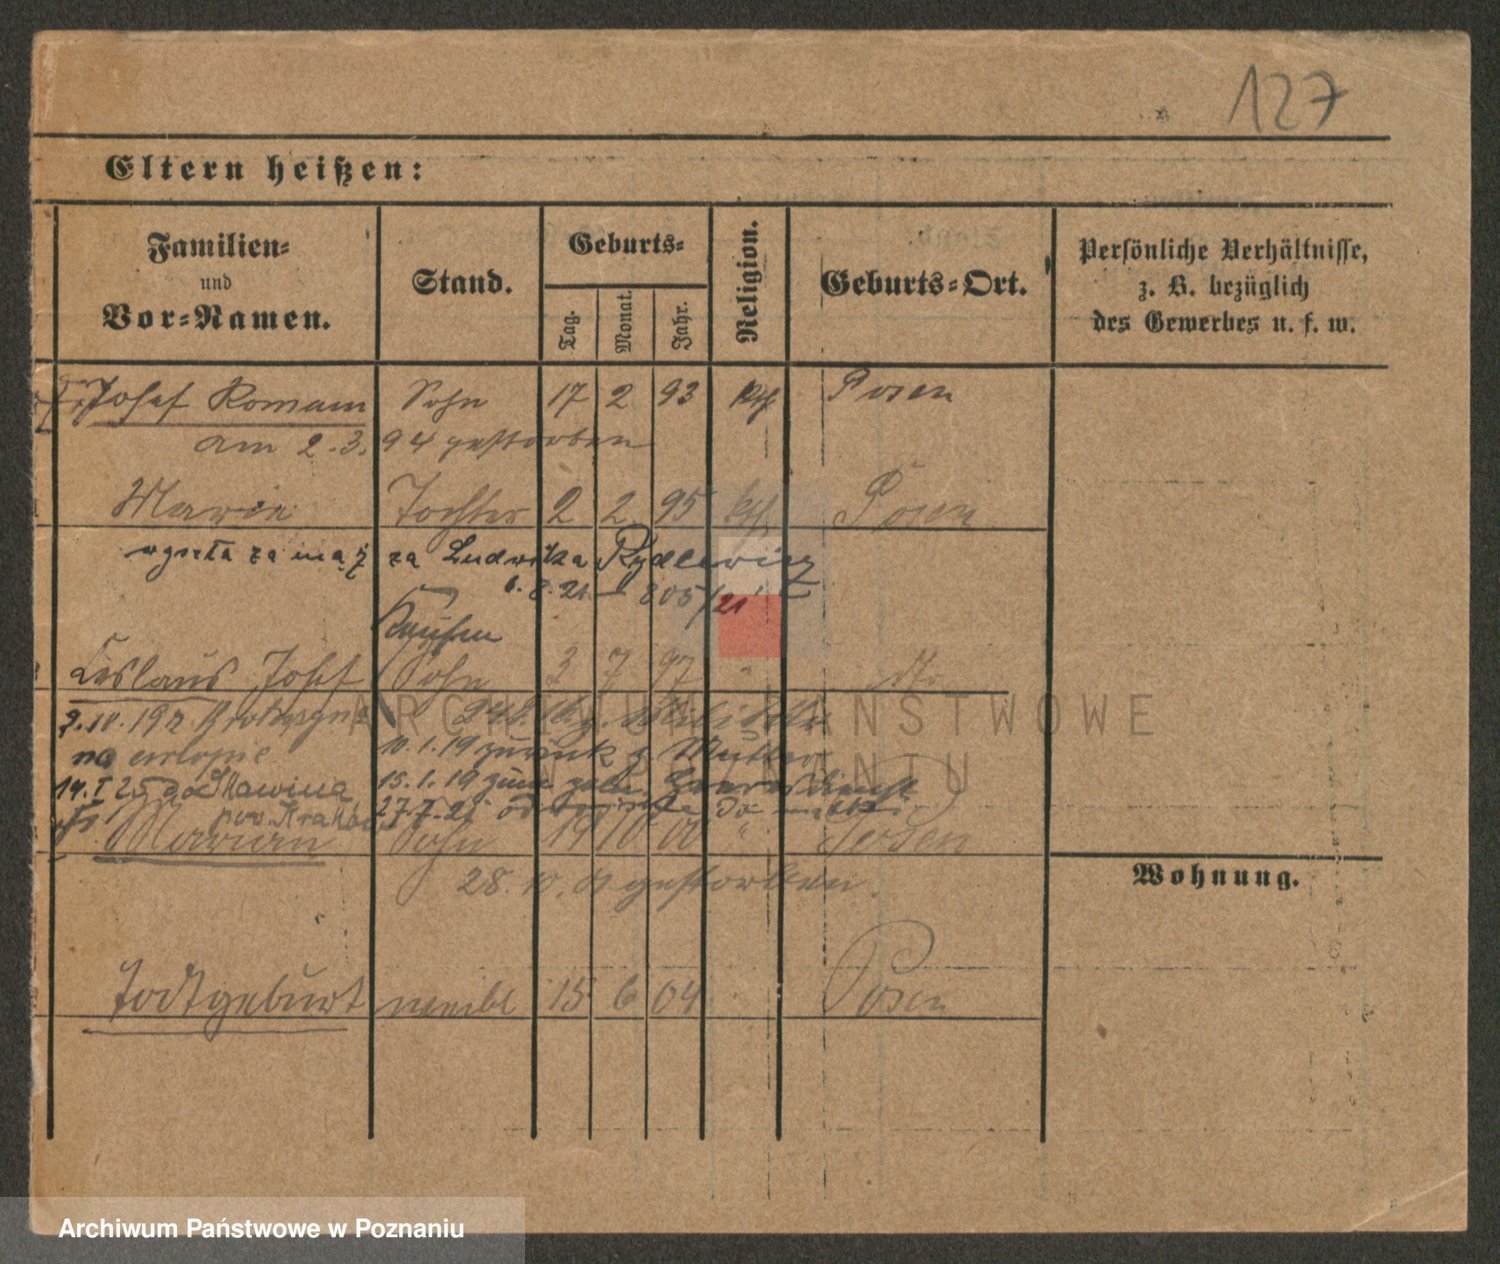 127
Eltern heißen:
Familien-
und
Vor-Namen.
Stand.
Geburts-
Tag.
Monat.
Jahr.
Religion.
Geburts-Ort.
Persönliche Verhältnisse,
z. B. bezüglich
des Gewerbes u. s. w.
Josef Roman Sohn 17 2 93 kth Posen
am 2.3.94 gestorben
Marie Tochter 2 2 95 kth Posen
wyszła za mąż za Ludwika Rydlewicz
6.8.21 805/21
Ceslaus Josef Sohn 3 7 97 " dto
10.1.19 zurück z. Mutter
na urlopie
14.I 25 do Skawina
pow. Krak
15.1.19 zum
27.7.21
Marian Sohn 19 10 00 "
28.10. gestorben.
Wohnung.
Todtgeburt weibl 15 6 04 Posen
ARCHIWUM PAŃSTWOWE
W POZNANIU
Archiwum Państwowe w Poznaniu